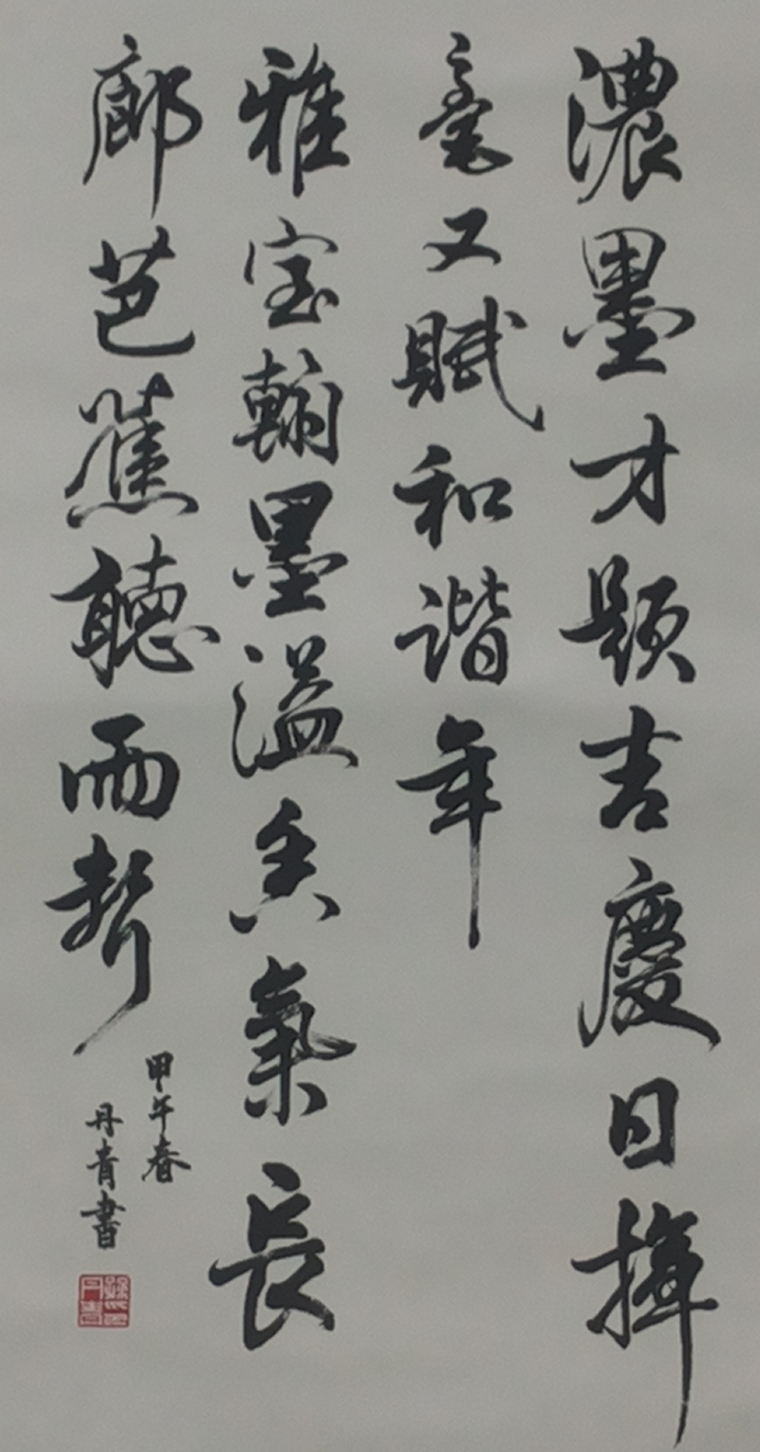 濃墨才題吉慶日揮
毫又賦和谐年
雅室翰墨溢香氣長
廊芭蕉聽雨聲
甲午春
丹青書